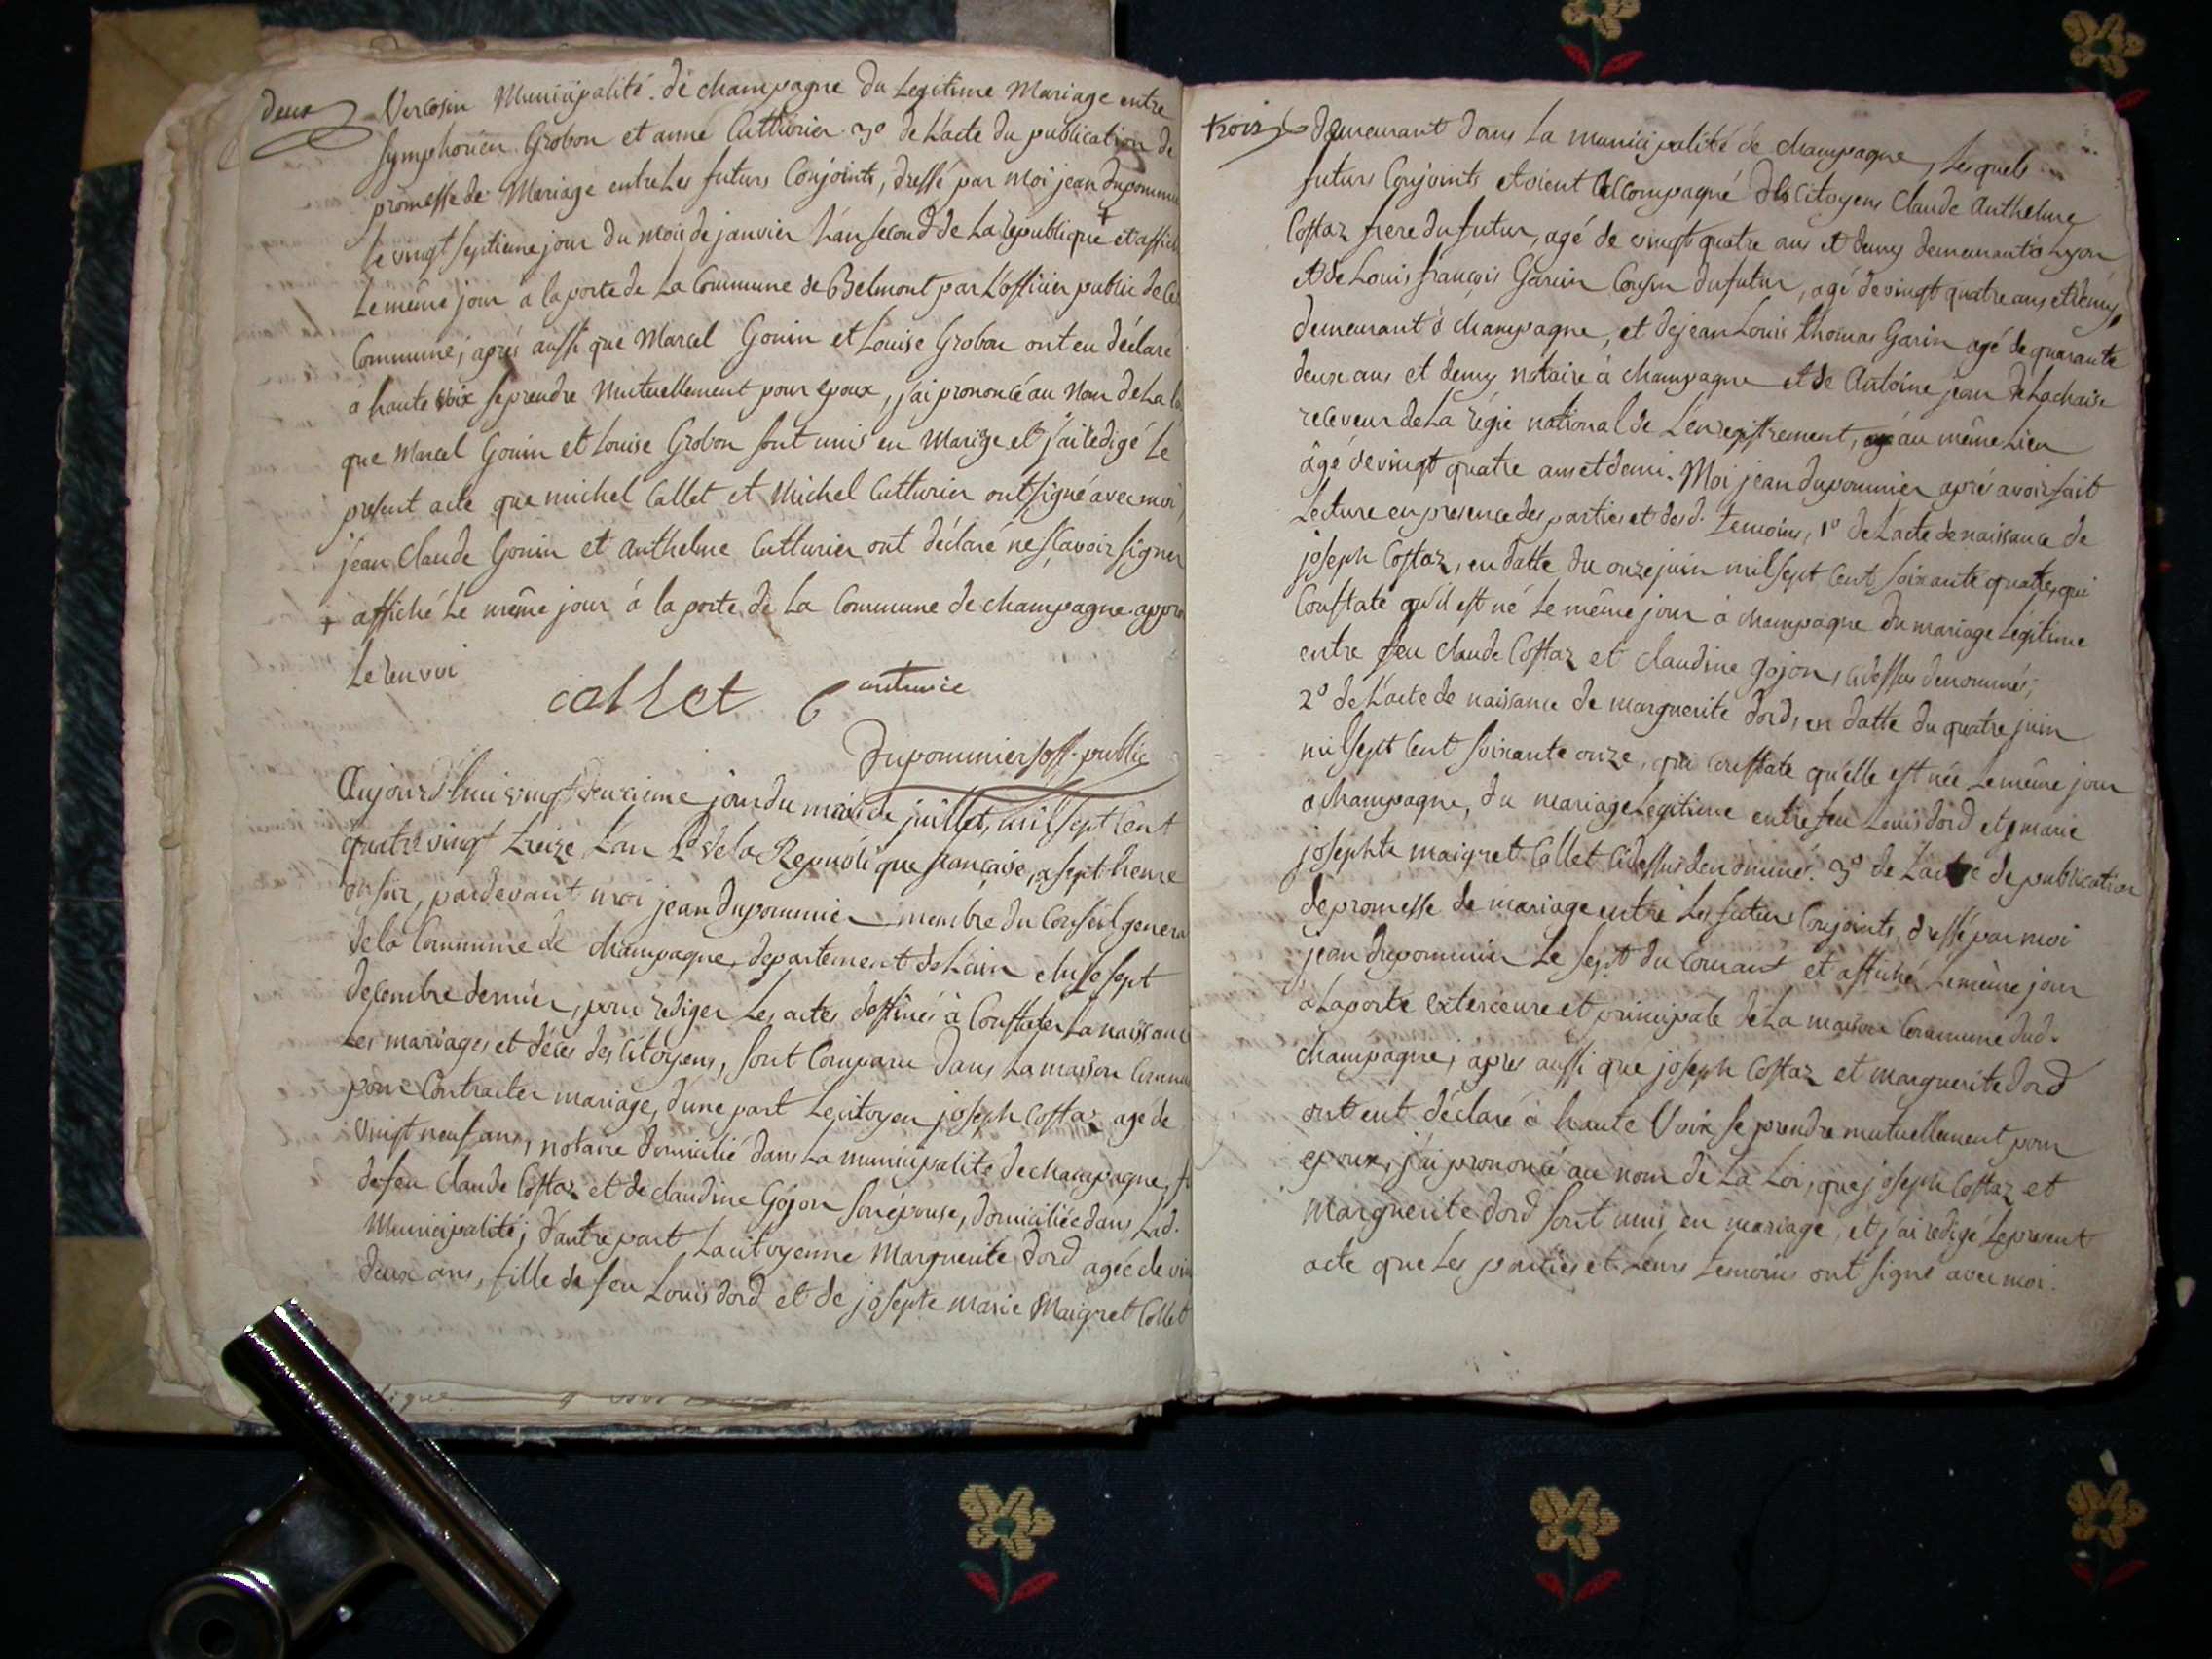 deux
Vercosin Municipalité de champagne du Legitime Mariage entre
Symphorien Grobon et anne Cutturier 3º de L'acte du publication de
promesse de Mariage entre Les futurs Conjoints, dressé par moi jean dupommier
le vingt septieme jour du mois de janvier L'an second de La republique + et affiché
Le même jour à la porte de La Commune de Belmont par L'officier public de
Commune, aprés aussi que Marcel Gonin et Louise Grobon ont eu déclaré
a haute voix se prendre Mutuellement pour epoux, j'ai prononcé au Nom de La
que Marcel Gonin et Louise Grobon sont unis en Marige et j'ai redigé Le
présent acte que michel Callet et Michel Cutturier ont signé avec moi
jean Claude Gonin et Anthelme Cutturier ont déclaré ne sçavoir signer
+ affiché Le même jour à la porte de La Commune de champagne appro
Le renvoi
callet
Dupommier off. public
Aujourd'hui vingt deuxieme jour du mois de juillet, mil sept Cent
quatre vingt treize L'an 2d de la Republique française, a sept heure
du soir, pardevant moi jean dupommier membre du Conseil genera
de la Commune de champagne, departement de Lain elu le sept
decembre dernier, pour rediger Les actes destinés à Constater La naissance
Les mariages et déces des Citoyens, sont Comparu dans La maison Commu
pour Contracter mariage, d'une part Le citoyen joseph Costaz agé de
vingt neuf ans, notaire domicilié dans La municipalité de champagne, f
de feu Claude Costaz et de claudine Gojon son épouse, domiciliée dans Lad.
Municipalité; d'autre part La citoyenne Marguerite Dord agée de vin
deux ans, fille de feu Louis dord et de josepte marie Maigret Collet
trois
demeurant dans La municipalité de champagne, Lesquels
futurs Conjoints etoient accompagné des Citoyens Claude Anthelme
Costaz frere du futur, agé de vingt quatre ans et demy demeurant à Lyon
et de Louis françois Garin Cousin du futur, agé de vingt quatre ans et demy,
demeurant à champagne, et de jean Louis thomas Garin agé de quarante
deux ans et demy notaire à champagne et de Antoine jean de Lachaise
receveur de La régie national de L'enregistrement, au même Lieu
âgé de vingt quatre ans et demi. Moi jean dupommier apré avoir fait
Lecture en presence des parties et desd. temoins, 1º de L'acte de naissance de
joseph Costaz, en datte du onze juin mil sept Cent soixante quatre, qui
Constate qu'il est né Le même jour à champagne du mariage Légitime
entre feu claude Costaz et claudine gojon, cidessus denommés;
2º de L'acte de naissance de marguerite dord, en datte du quatre juin
mil sept Cent soixante onze, qui Constate qu'elle est née Le même jour
a champagne, du mariage Legitime entre feu Louis dord et marie
josephte maigret Collet Cidessus denommé. 3º de L'acte de publication
de promesse de mariage entre Les futurs Conjoints, dressé par moi
jean dupommier Le sept du Courant et affiché Le même jour
à La porte exterieure et principale de La maison Commune dud.
champagne, apres aussi que joseph Costaz et marguerite dord
ont eut déclaré à haute Voix se prendre mutuellement pour
epoux, j'ai prononcé au nom de La Loi, que joseph Costaz et
Marguerite dord sont unis en mariage, et j'ai redigé Le present
acte que Les parties et Leurs temoins ont signé avec moi.